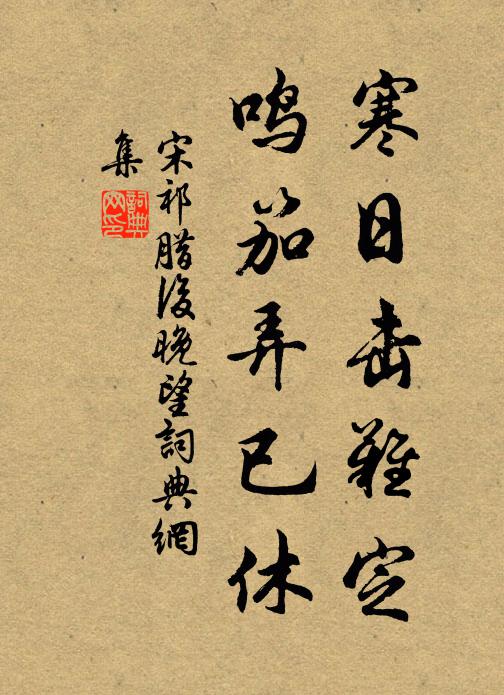 寒日击難定
鳴笳弄已休
宋祁腊後晚望詞典網
集
詞典网印